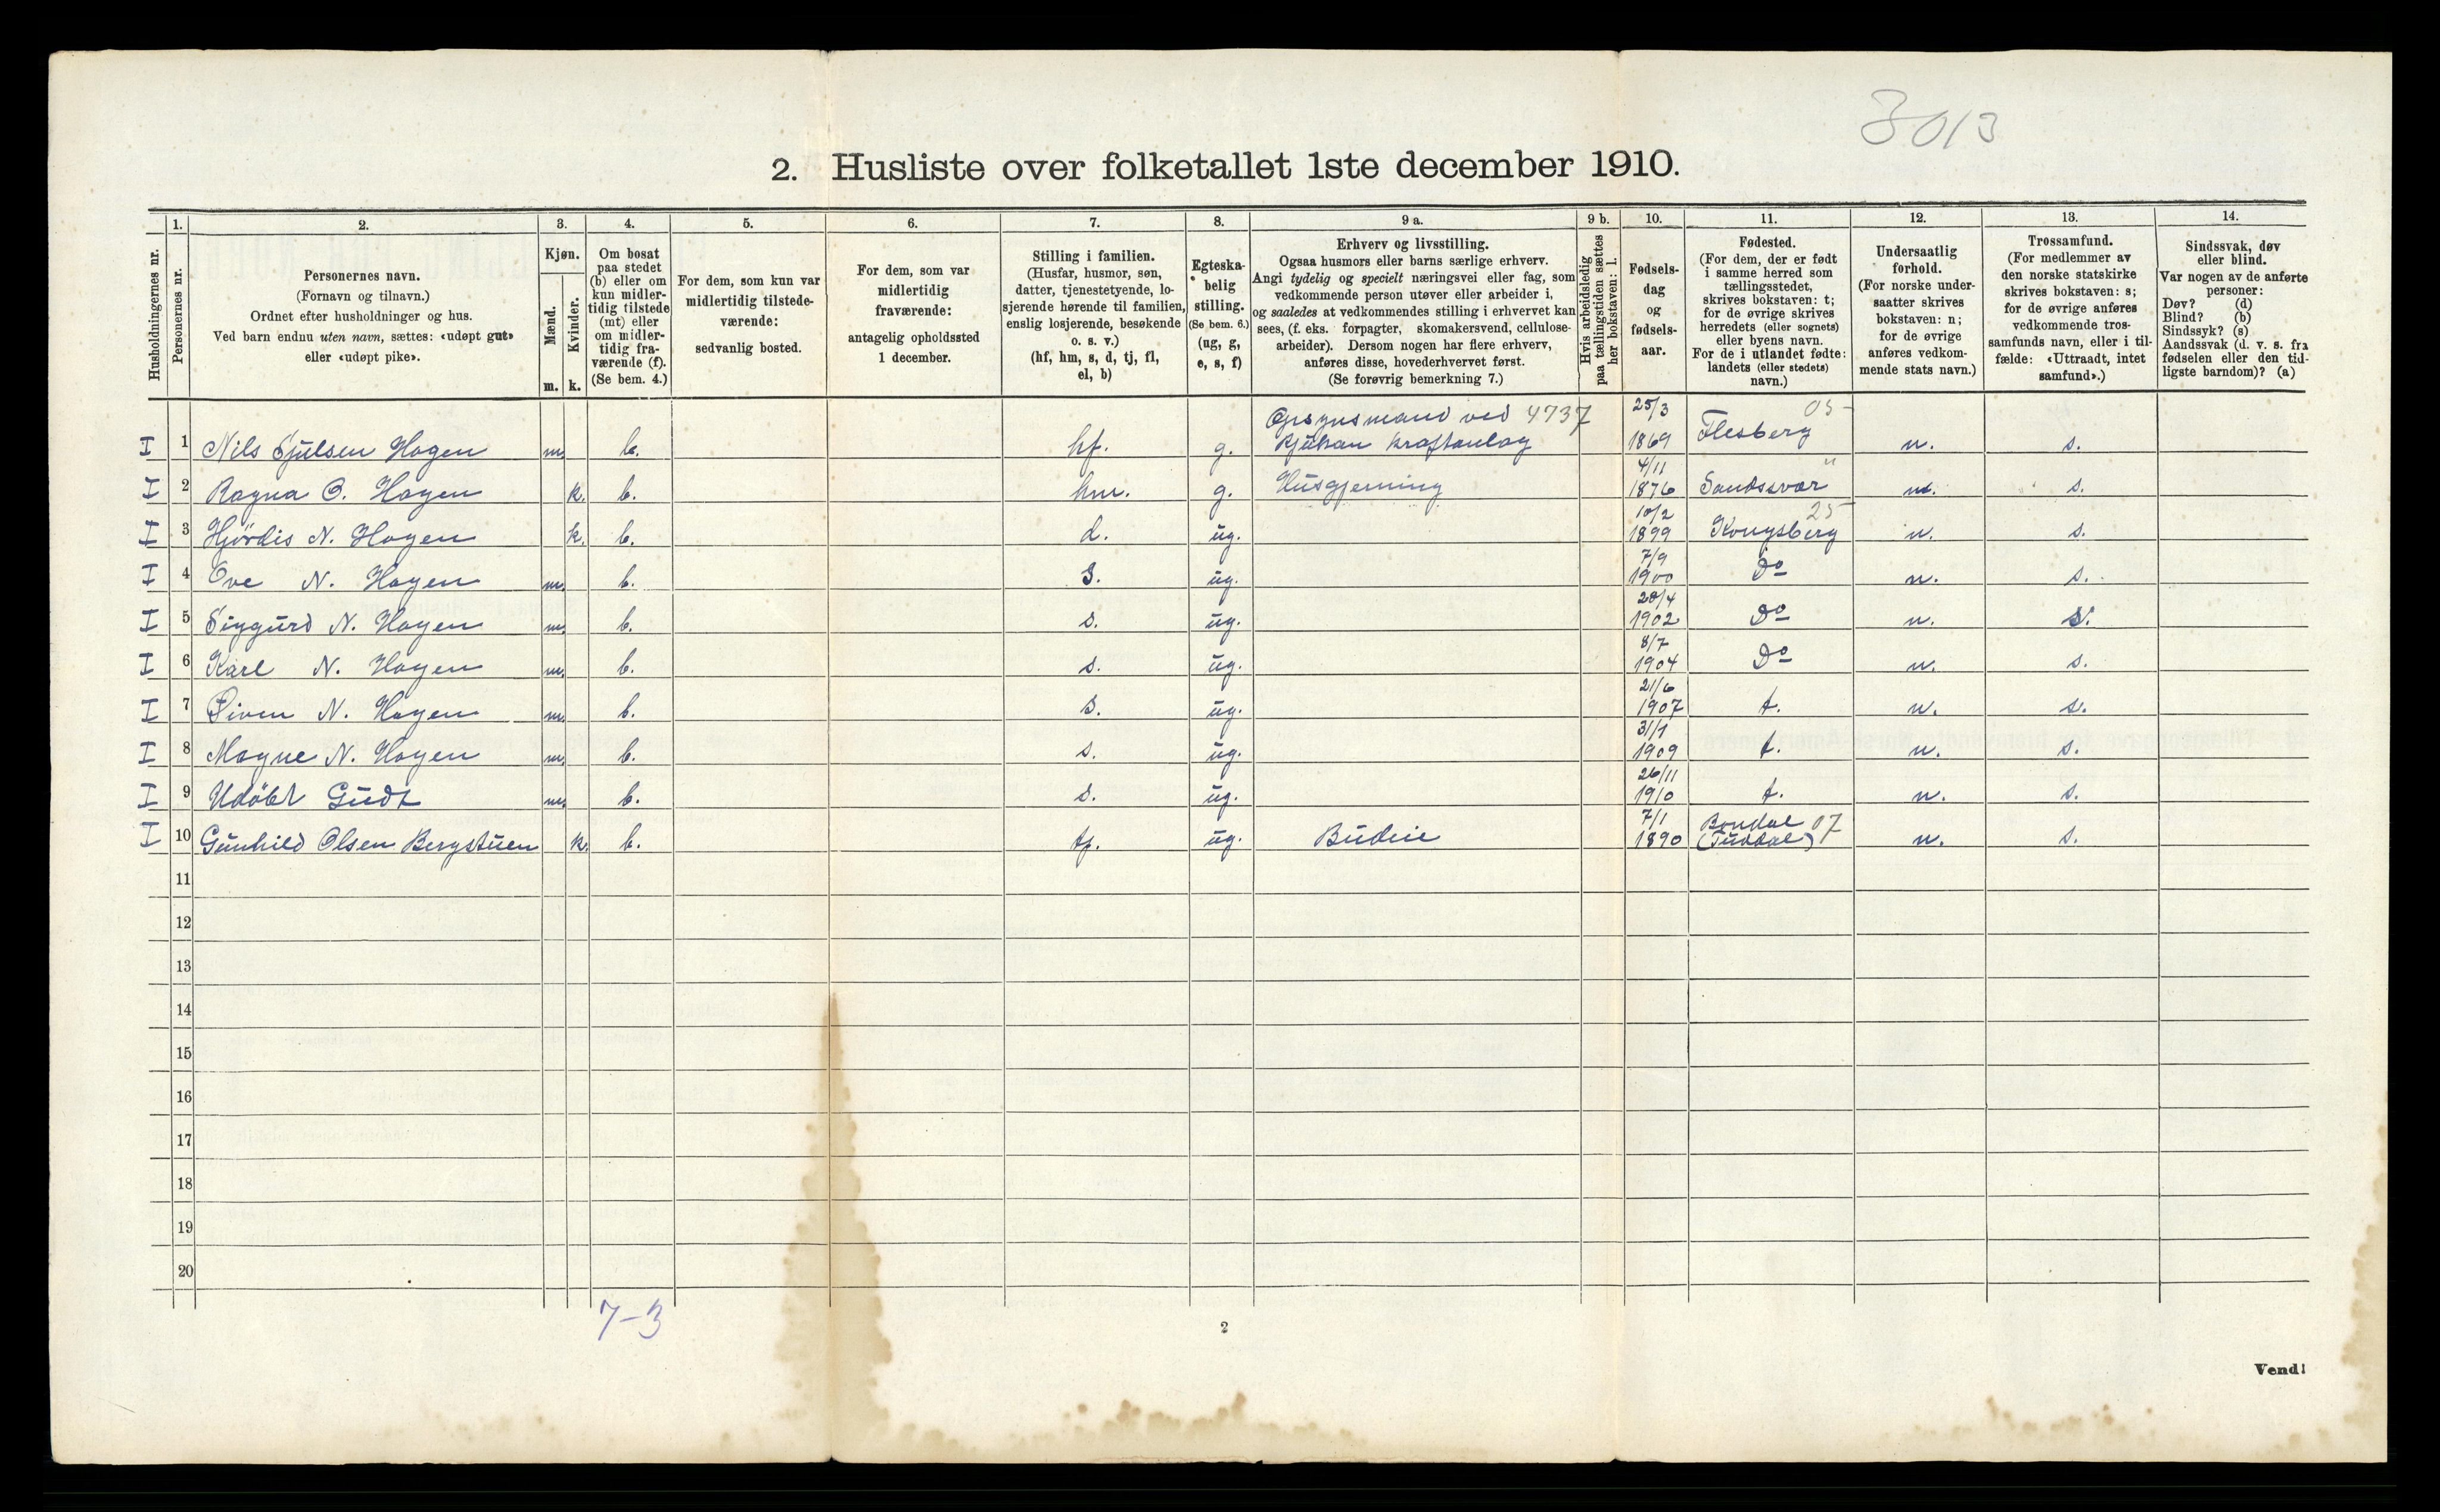 3013
2. Husliste over folketallet 1ste december 1910.
Husholdningernes nr.
1.
Personernes nr.
2.
Personernes navn.
(Fornavn og tilnavn.)
Ordnet efter husholdninger og hus.
Ved barn endnu uten navn, sættes: «udøpt gut»
eller «udøpt pike».
3.
Kjøn.
Mænd.
Kvinder.
m. k.
4.
Om bosat
paa stedet
(b) eller om
kun midler-
tidig tilstede
(mt) eller
om midler-
tidig fra-
værende (f).
(Se bem. 4.)
5.
For dem, som kun var
midlertidig tilstede-
værende:
sedvanlig bosted.
6.
For dem, som var
midlertidig
fraværende:
antagelig opholdssted
1 december.
7.
Stilling i familien.
(Husfar, husmor, søn,
datter, tjenestetyende, lo-
sjerende hørende til familien,
enslig losjerende, besøkende
o. s. v.)
(hf, hm, s, d, tj, fl,
el, b)
8.
Egteska-
belig
stilling.
(Se bem. 6.)
(ug, g,
e, s, f)
9 a.
Erhverv og livsstilling.
Ogsaa husmors eller barns særlige erhverv.
Angi tydelig og specielt næringsvei eller fag, som
vedkommende person utøver eller arbeider i,
og saaledes at vedkommendes stilling i erhvervet kan
sees, (f. eks. forpagter, skomakersvend, cellulose-
arbeider). Dersom nogen har flere erhverv,
anføres disse, hovederhvervet først.
(Se forøvrig bemerkning 7.)
9 b.
Hvis arbeidsledig
paa tællingstiden sættes
her bokstaven: l.
10.
Fødsels-
dag
og
fødsels-
aar.
11.
Fødested.
(For dem, der er født
i samme herred som
tællingsstedet,
skrives bokstaven: t;
for de øvrige skrives
herredets (eller sognets)
eller byens navn.
For de i utlandet fødte:
landets (eller stedets)
navn.)
12.
Undersaatlig
forhold.
(For norske under-
saatter skrives
bokstaven: n;
for de øvrige
anføres vedkom-
mende stats navn.)
13.
Trossamfund.
(For medlemmer av
den norske statskirke
skrives bokstaven: s;
for de øvrige anføres
vedkommende tros-
samfunds navn, eller i til-
fælde: «Uttraadt, intet
samfund».)
14.
Sindssvak, døv
eller blind.
Var nogen av de anførte
personer:
Døv? (d)
Blind? (b)
Sindssyk? (s)
Aandssvak (d. v. s. fra
fødselen eller den tid-
ligste barndom)? (a)
Opsynsmand ved 4737 25/3 05
I 1 Nils Hjulsen Hagen m. b. hf. g. Rjukan kraftanlæg 1869 Flesberg n. s.
4/11 "
I 2 Ragna O. Hagen k. b. hm. g. Husgjerning 1876 Sandsvær n. s.
10/2 25
I 3 Hjørdis N. Hagen k. b. d. ug. 1899 Kongsberg n. s.
7/9
I 4 Ove N. Hagen m. b. s. ug. 1900 Do n. s.
28/4
I 5 Siggurd N. Hagen m. b. s. ug. 1902 Do n. s.
8/7
I 6 Karl N. Hagen m. b. s. ug. 1904 Do n. s.
21/6
I 7 N. Hagen m. b. s. ug. 1907 t. n. s.
31/1
I 8 Magne N. Hagen m. b. s. ug. 1909 t. n. s.
26/11
I 9 Udöbt Gudt m. b. s. ug. 1910 t. n. s.
7/1 07
I 10 Gunhild Olsen Bergstuen k. b. tj. ug. Budeie 1890 (Tuddal) n. s.
11
12
13
14
15
16
17
18
19
20
7-3
2
Vend!